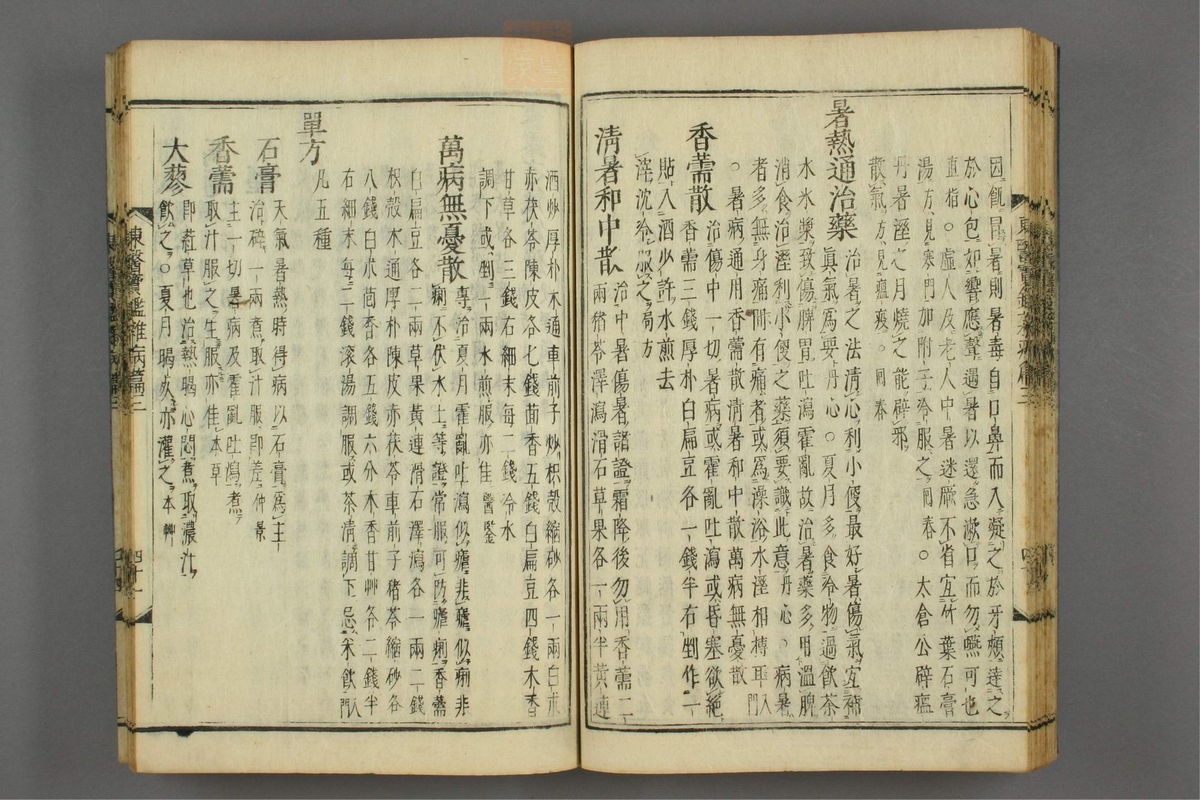 因飢昆暑則暑毒自口鼻而入凝之於牙頰達之
於心包如響應聲遇暑以還急漱口而勿嚥可也
直指○虛人及老人中暑迷厥不省宜竹葉石膏
湯方見寒門加附子冷服之同春○太倉公辟瘟
丹暑濕之月燒之能辟邪
散氣方見瘟疫○同春
暑熱通治藥
治暑之法淸心利小便最好暑傷氣宜補
眞氣爲要丹心○夏月多食冷物過飮茶
水氷漿致傷脾胃吐瀉霍亂故治暑藥多用溫脾
消食治濕利小便之藥須要識此意丹心○病暑
者多無身痛間有痛者或爲澡浴水濕相搏耳入門
○暑病通用香薷散淸暑和中散萬病無憂散
香薷散
治傷中一切暑病或霍亂吐瀉或昏塞欲絶
香薷三錢厚朴白扁豆各一錢半右剉作一
貼入酒少許水煎去
滓沈冷服之局方
淸暑和中散
治中暑傷暑諸證霜降後勿用香薷二
兩猪苓澤瀉滑石草果各一兩半黃連
酒炒厚朴木通車前子炒枳殼縮砂各一兩白朮
赤茯苓陳皮各七錢茴香五錢白扁豆四錢木香
甘草各三錢右細末每二錢冷水
調下或剉一兩水煎服亦佳醫鑒
萬病無憂散
專治夏月霍亂吐瀉似瘧非瘧似痢非
痢不伏水土等證常服可防瘧痢香薷
白扁豆各二兩草果黃連滑石澤瀉各一兩二錢
枳殼木通厚朴陳皮赤茯苓車前子猪苓縮砂各
八錢白朮茴香各五錢六分木香甘艸各二錢半
右細末每二錢滾湯調服或茶淸調下忌米飮入門
單方
凡五種
石膏
天氣暑熱時得病以石膏爲主
治碎一兩煮取汁服卽差仲景
香薷
主一切暑病及霍亂吐瀉煮
取汁服之生服亦佳本草
大蓼
卽葒草也治熱暍心悶煮取濃汁
飮之○夏月暍死亦灌之本艸
東醫寶鑑雜病篇三
四十一